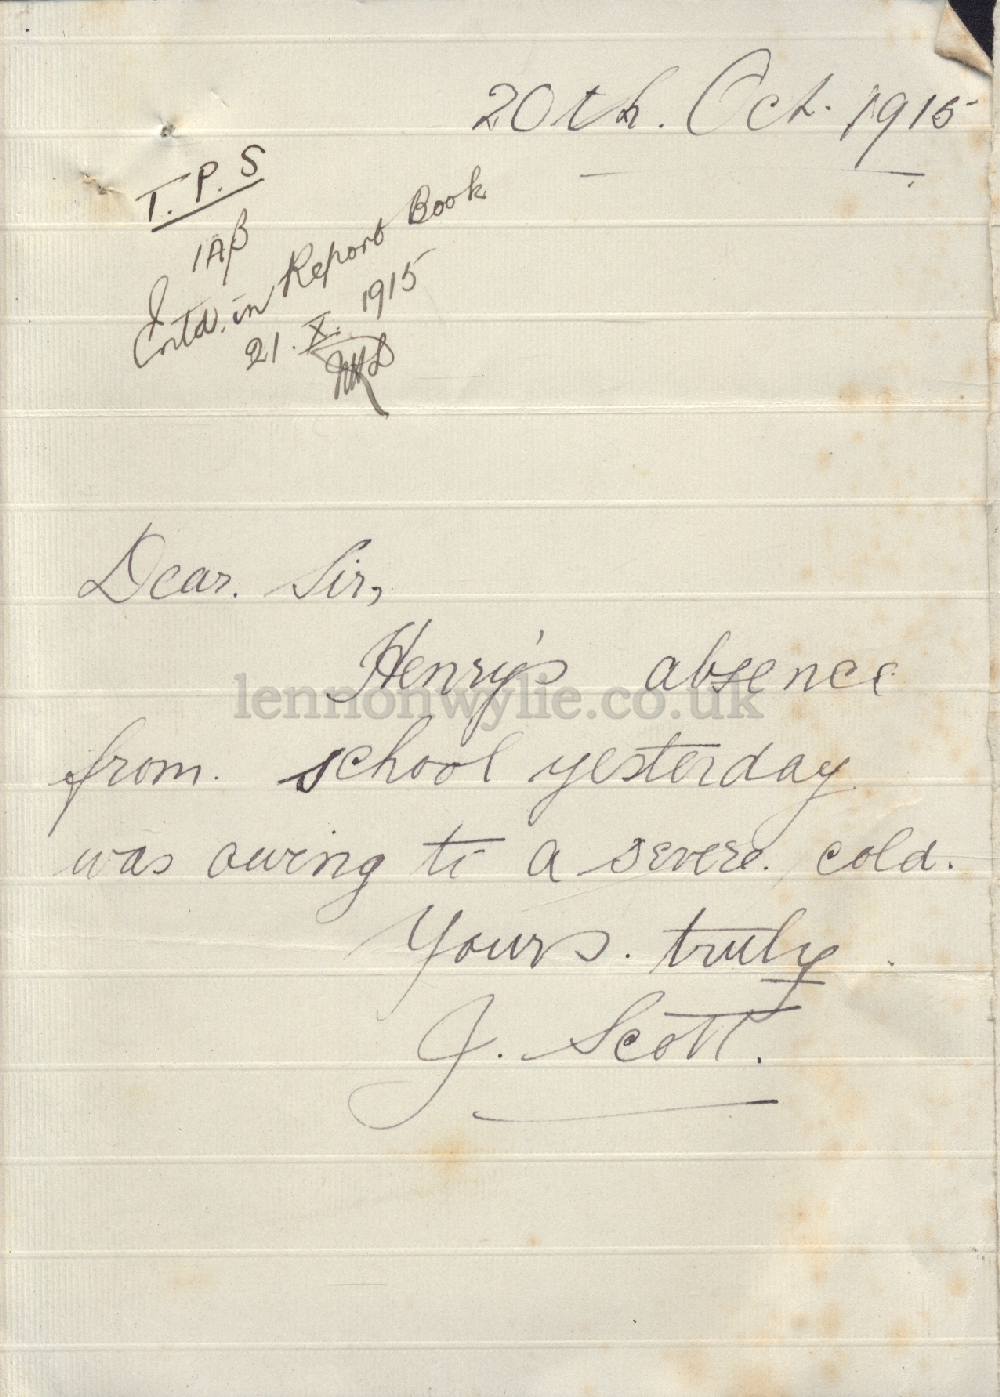 20th. Oct. 1915
T. P. S
1Aβ
in Report Book
21. X. 1915
Dear. Sir,
Henry's absence
lennonwylie.co.uk
from. school yesterday
was owing to a severe. cold.
Yours. truly
J. Scott.